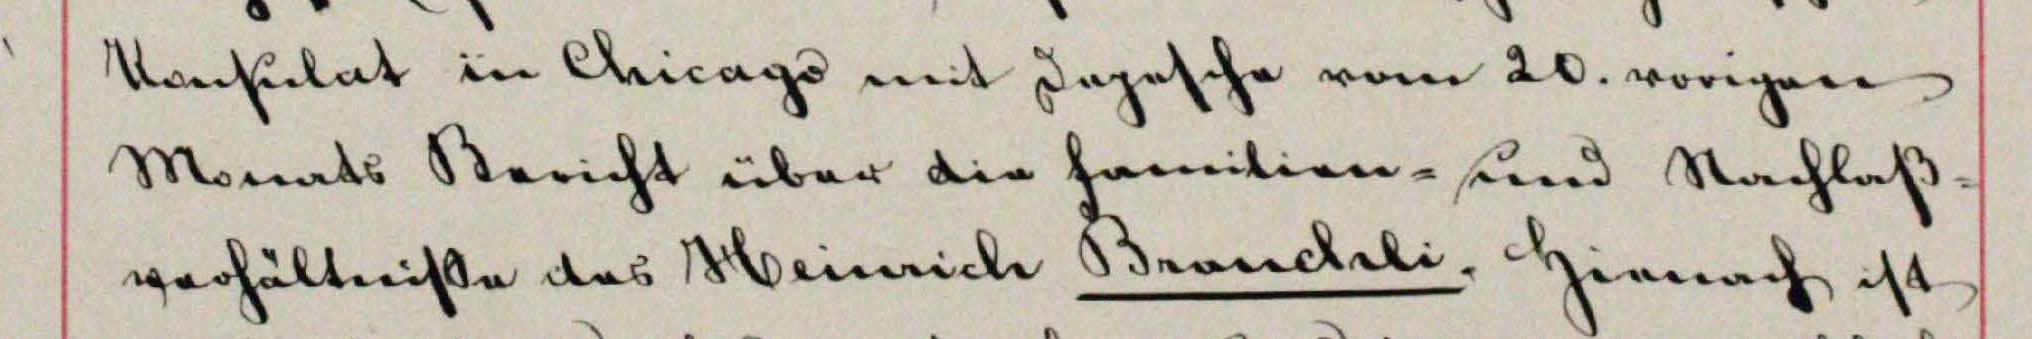 Konsulat in Chicago mit Depesche vom 20. vorigen
Monats Bericht über die Familien- und Nachlaß-
verhältniße des Heinrich Brändli. Hienach ist